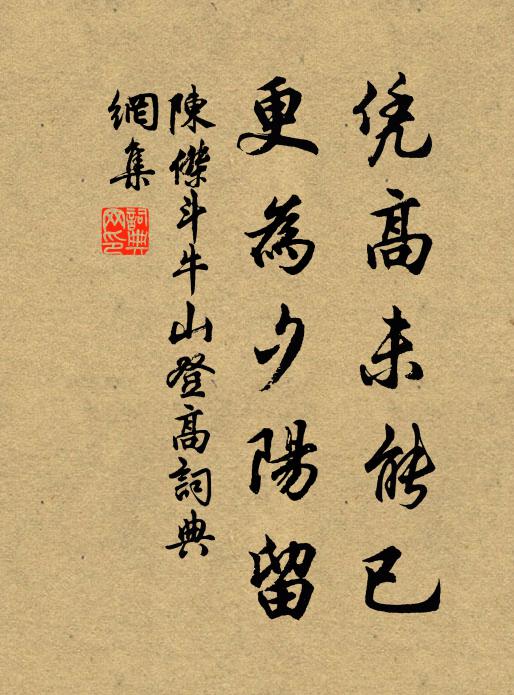 凭高未能已
更為夕陽留
陳傑斗牛山登高詞典
網集
詞典
网印